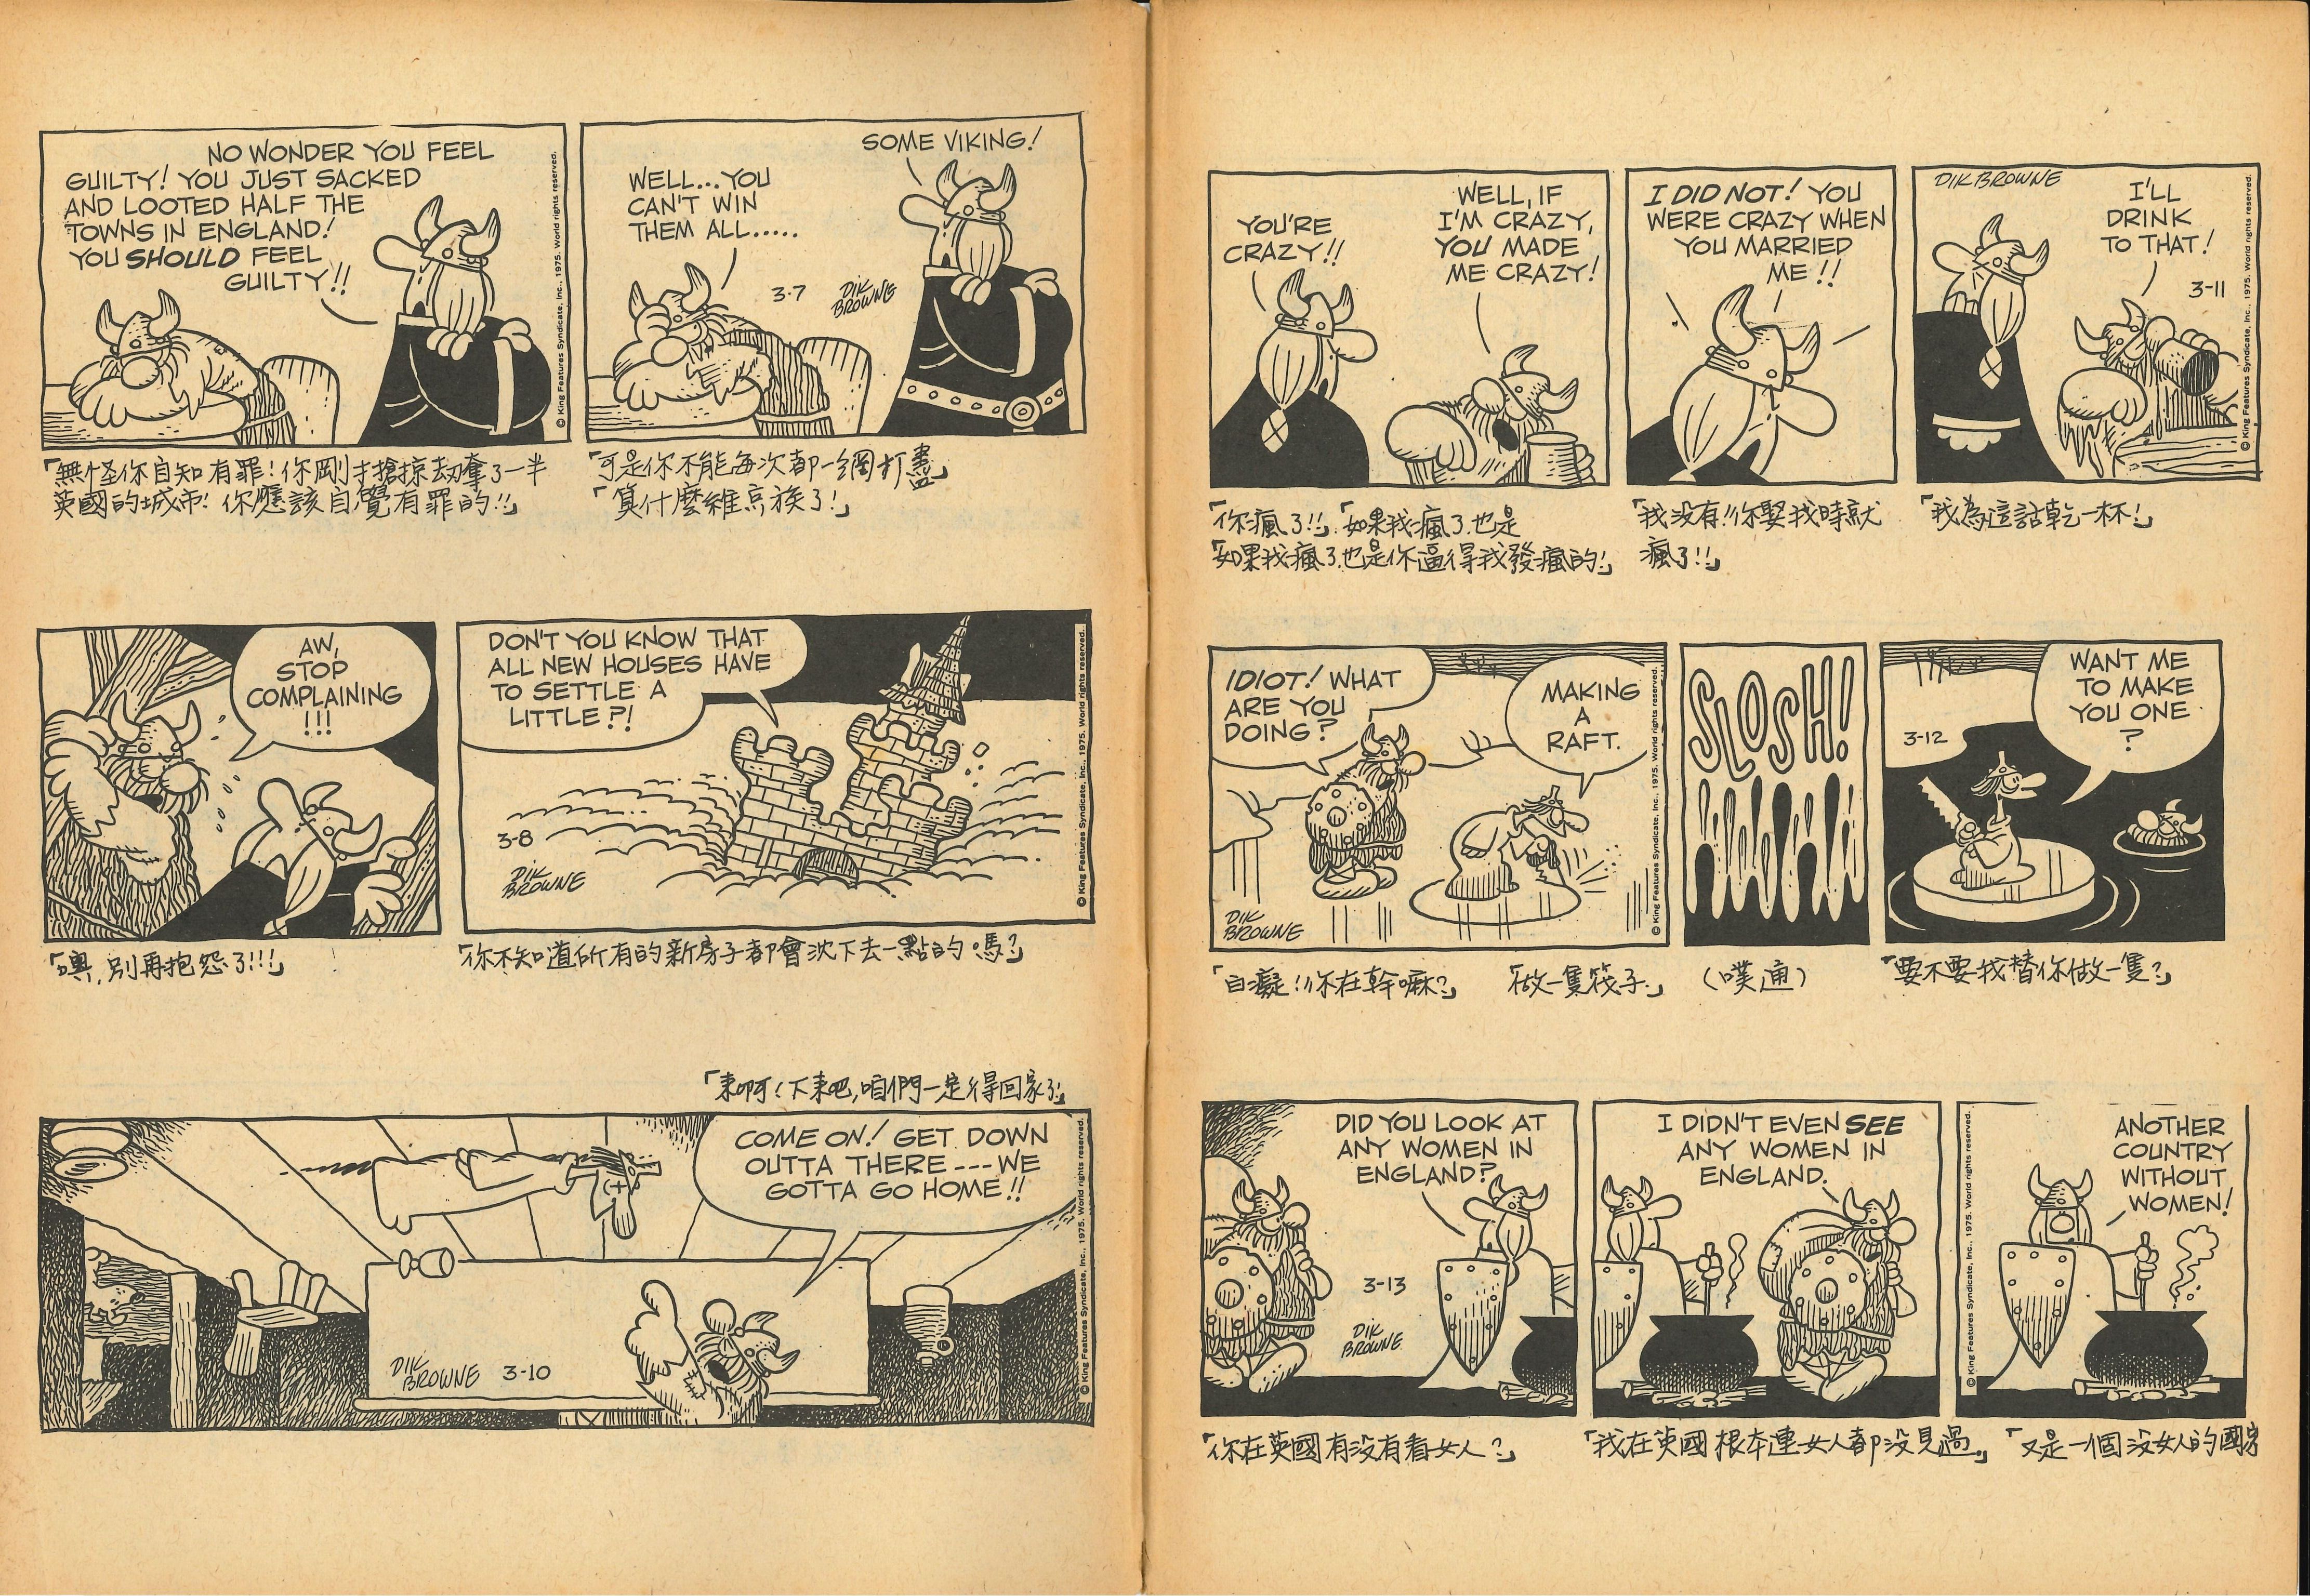 NO WONDER YOU FEEL
GUILTY! YOU JUST SACKED
AND LOOTED HALF THE
TOWNS IN ENGLAND!
YOU SHOULD FEEL
GUILTY!!
© King Features Syndicate, Inc., 1975. World rights reserved.
WELL...YOU
CAN'T WIN
THEM ALL.....
SOME VIKING!
3-7
DIK
BROWNE
「無怪你自知有罪!你剛才搶掠刧奪了一半
英國的城市!你應該自覺有罪的!!」
「可是你不能每次都一網打盡」
「算什麼維京族了!」
AW,
STOP
COMPLAINING
!!!
DON'T YOU KNOW THAT
ALL NEW HOUSES HAVE
TO SETTLE A
LITTLE?!
3-8
DIK
BROWNE
© King Features Syndicate, Inc., 1975. World rights reserved.
「噢,別再抱怨了!!!」
「你不知道所有的新房子都會沈下去一點的嗎?」
「來啊!下來吧,咱們一定得回家了!」
COME ON! GET DOWN
OUTTA THERE---WE
GOTTA GO HOME!!
DIK
BROWNE
3-10
© King Features Syndicate, Inc., 1975. World rights reserved.
YOU'RE
CRAZY!!
WELL, IF
I'M CRAZY,
YOU MADE
ME CRAZY!
I DID NOT! YOU
WERE CRAZY WHEN
YOU MARRIED
ME!!
DIK BROWNE
I'LL
DRINK
TO THAT!
3-11
© King Features Syndicate, Inc., 1975. World rights reserved.
「你瘋了!!」「如果我瘋了也是
「如果我瘋了也是你逼得我發瘋的!」
「我没有!!你娶我時就
瘋了!!」
「我為這話乾一杯!」
IDIOT! WHAT
ARE YOU
DOING?
MAKING
A
RAFT.
DIK
BROWNE
© King Features Syndicate, Inc., 1975. World rights reserved.
SLOSH!
3-12
WANT ME
TO MAKE
YOU ONE
?
「白癡!!你在幹嘛?」
「做一隻筏子」
(噗通)
「要不要我替你做一隻?」
DID YOU LOOK AT
ANY WOMEN IN
ENGLAND?
3-13
DIK
BROWNE
I DIDN'T EVEN SEE
ANY WOMEN IN
ENGLAND.
ANOTHER
COUNTRY
WITHOUT
WOMEN!
© King Features Syndicate, Inc., 1975. World rights reserved.
「你在英國有没有看女人?」
「我在英國根本連女人都没見過」
「又是一個没女人的國家